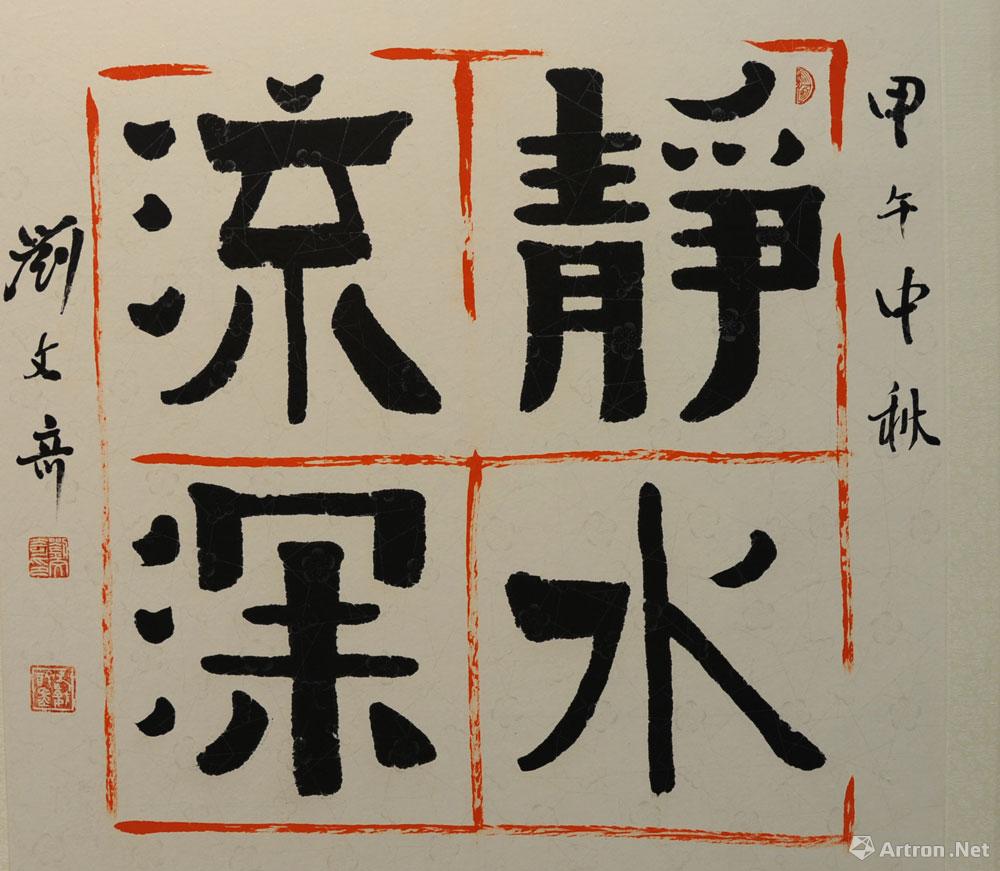 甲午中秋
靜水
流深
劉文竒
Artron.Net